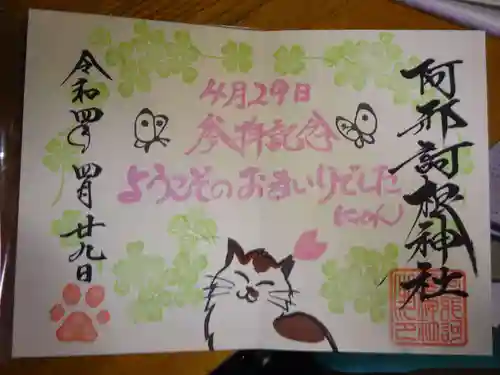 阿邪訶根神社
4月29日
参拝記念
ようこそのおまいりでした
にゃん
令和四年四月廿九日